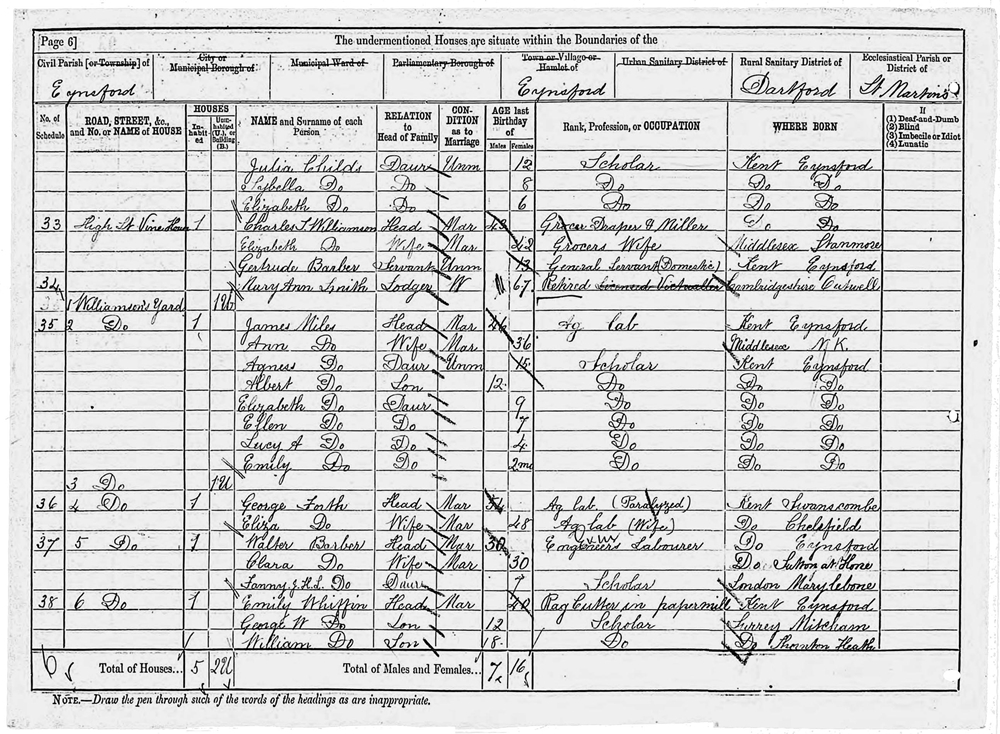 Page 6]
The undermentioned Houses are situate within the Boundaries of the
Civil Parish [or Township] of
City or Municipal Borough of
Municipal Ward of
Parliamentary Borough of
Town or Village or Hamlet of
Urban Sanitary District of
Rural Sanitary District of
Ecclesiastical Parish or District of
Eynsford Eynsford Dartford St Martins
No. of Schedule
ROAD, STREET, &c., and No. or NAME of HOUSE
HOUSES
In-habit-ed
Unin-habited (U.), or Building (B.)
NAME and Surname of each Person
RELATION to Head of Family
CON-DITION as to Marriage
AGE last Birthday of
Males Females
Rank, Profession, or OCCUPATION
WHERE BORN
If
(1) Deaf-and-Dumb
(2) Blind
(3) Imbecile or Idiot
(4) Lunatic
Julia Childs Daur Unm 12 Scholar Kent Eynsford
Sybella Do Do 8 Do Do Do
Elizabeth Do Do 6 Do Do Do
33 High St Vine House 1 Charles T Williamson Head Mar 43 Grocer Draper & Miller Do Do
Elizabeth Do Wife Mar 42 Grocers Wife Middlesex Stanmore
Gertrude Barber Servant Unm 13 General Servant (Domestic) Kent Eynsford
34 Mary Ann Smith Lodger W 67 Retired Licensed Victualler Cambridgeshire Outwell
1 Williamson's Yard 1U
35 2 Do 1 James Miles Head Mar 46 Ag lab Kent Eynsford
Ann Do Wife Mar 36 Middlesex N.K.
Agness Do Daur Unm 15 Scholar Kent Eynsford
Albert Do Son 12 Do Do Do
Elizabeth Do Daur 9 Do Do Do
Ellen Do Do 7 Do Do Do
Lucy A Do Do 4 Do Do Do
Emily Do Do 2mo Do Do Do
3 Do 1U
36 4 Do 1 George Forth Head Mar Ag lab (Paralyzed) Kent Swanscombe
Eliza Do Wife Mar 48 Ag lab (Wife) Do Chelsfield
37 5 Do 1 Walter Barber Head Mar 30 Engineers Labourer Do Eynsford
Clara Do Wife Mar 30 Do Sutton at Hone
Fanny J.H.L. Do Daur 7 Scholar London Marylebone
38 6 Do 1 Emily Whiffin Head Mar 40 Rag Cutter in papermill Kent Eynsford
George W Do Son 12 Scholar Surrey Mitcham
William Do Son 8 Do Do Thornton Heath
6 Total of Houses... 5 2U Total of Males and Females... 7 16
NOTE.—Draw the pen through such of the words of the headings as are inappropriate.